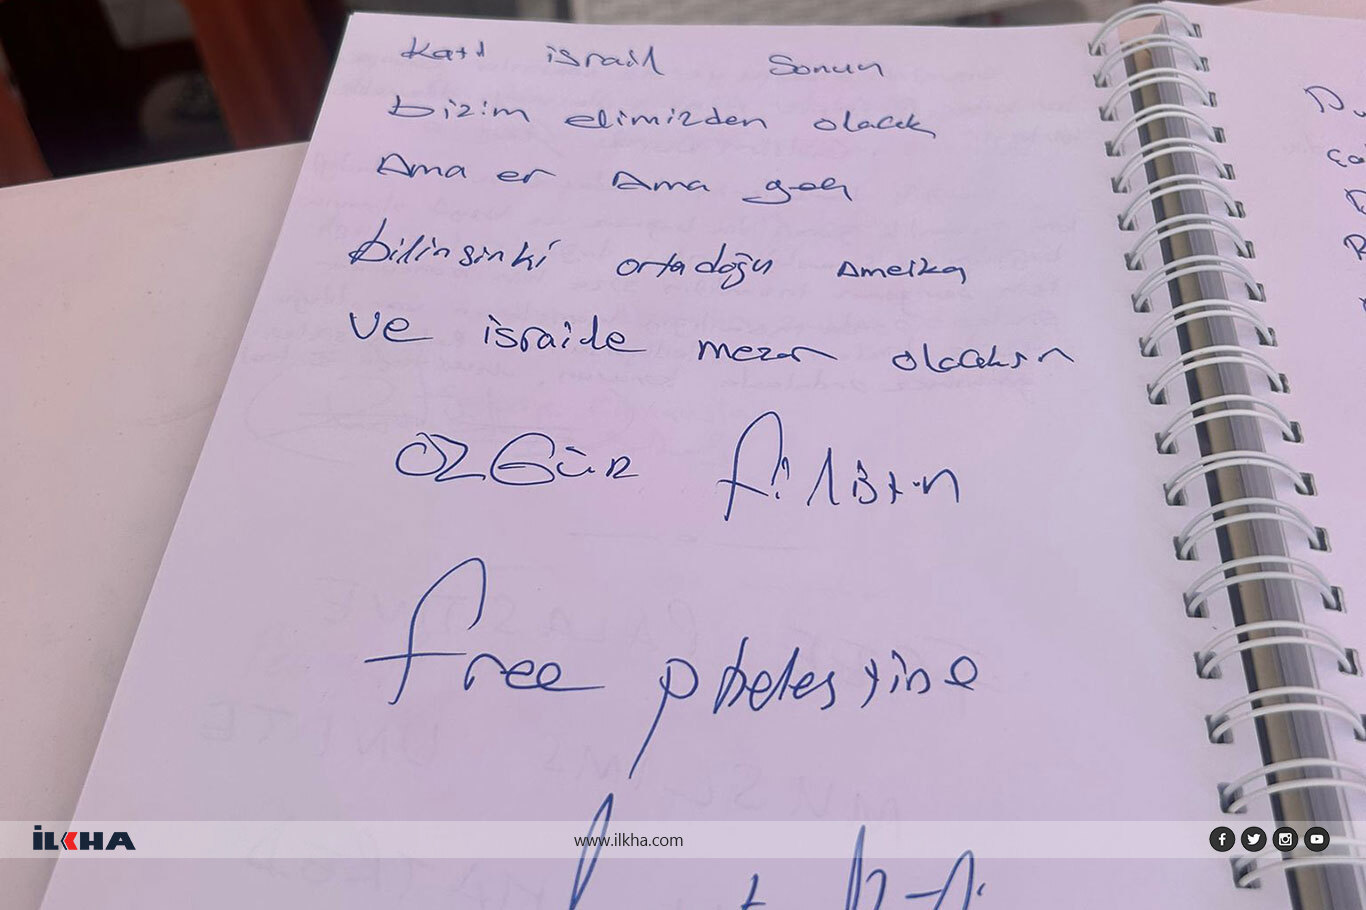 Katil israil Sonun
bizim elimizden olacak
Ama er Ama geç
bilinsinki ortadoğu Ameika
ve israile mezar olacaksın
ÖZGÜR filistin
free phelestine
İLKHA
www.ilkha.com